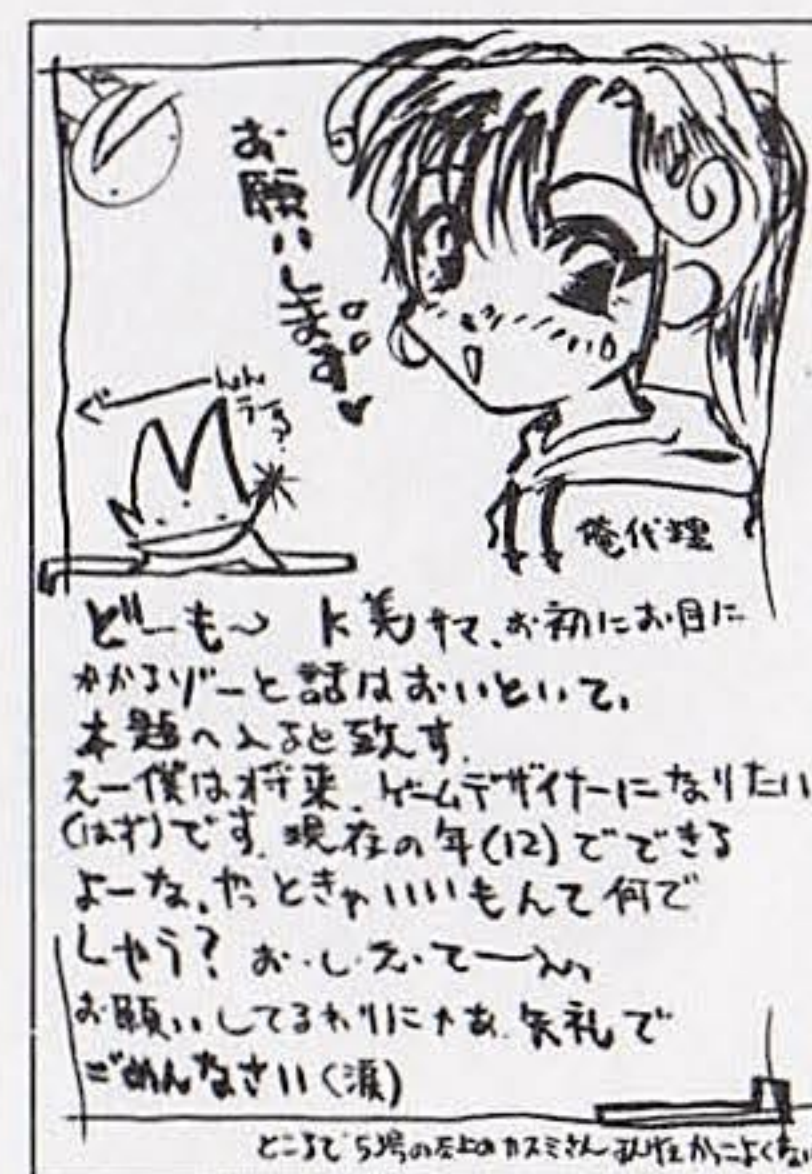 お願いします♥
俺代理
どーも〜 K美サマ、お初にお目に
かかるゾーと話はおいといて、
本題へ入ると致す.
えー僕は将来、ゲームデザイナーになりたい
(はず)です. 現在の年(12)でできる
よーな、やっときゃいいもんて何で
しょう? お・し・え・てー
お願いしてるわりにゃあ、失礼で
ごめんなさい(涙)
ところで5号の左上のカスミさん